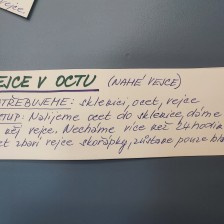 EJCE V OCTU (NAHÉ VEJCE)
OTŘEBUJEME: sklenici, ocet, vejce
STUP: Nalijeme ocet do sklenice, dáme
něj vejce. Necháme více než 24 hodin
cet zbaví vejce skořápky, zůstane pouze bla